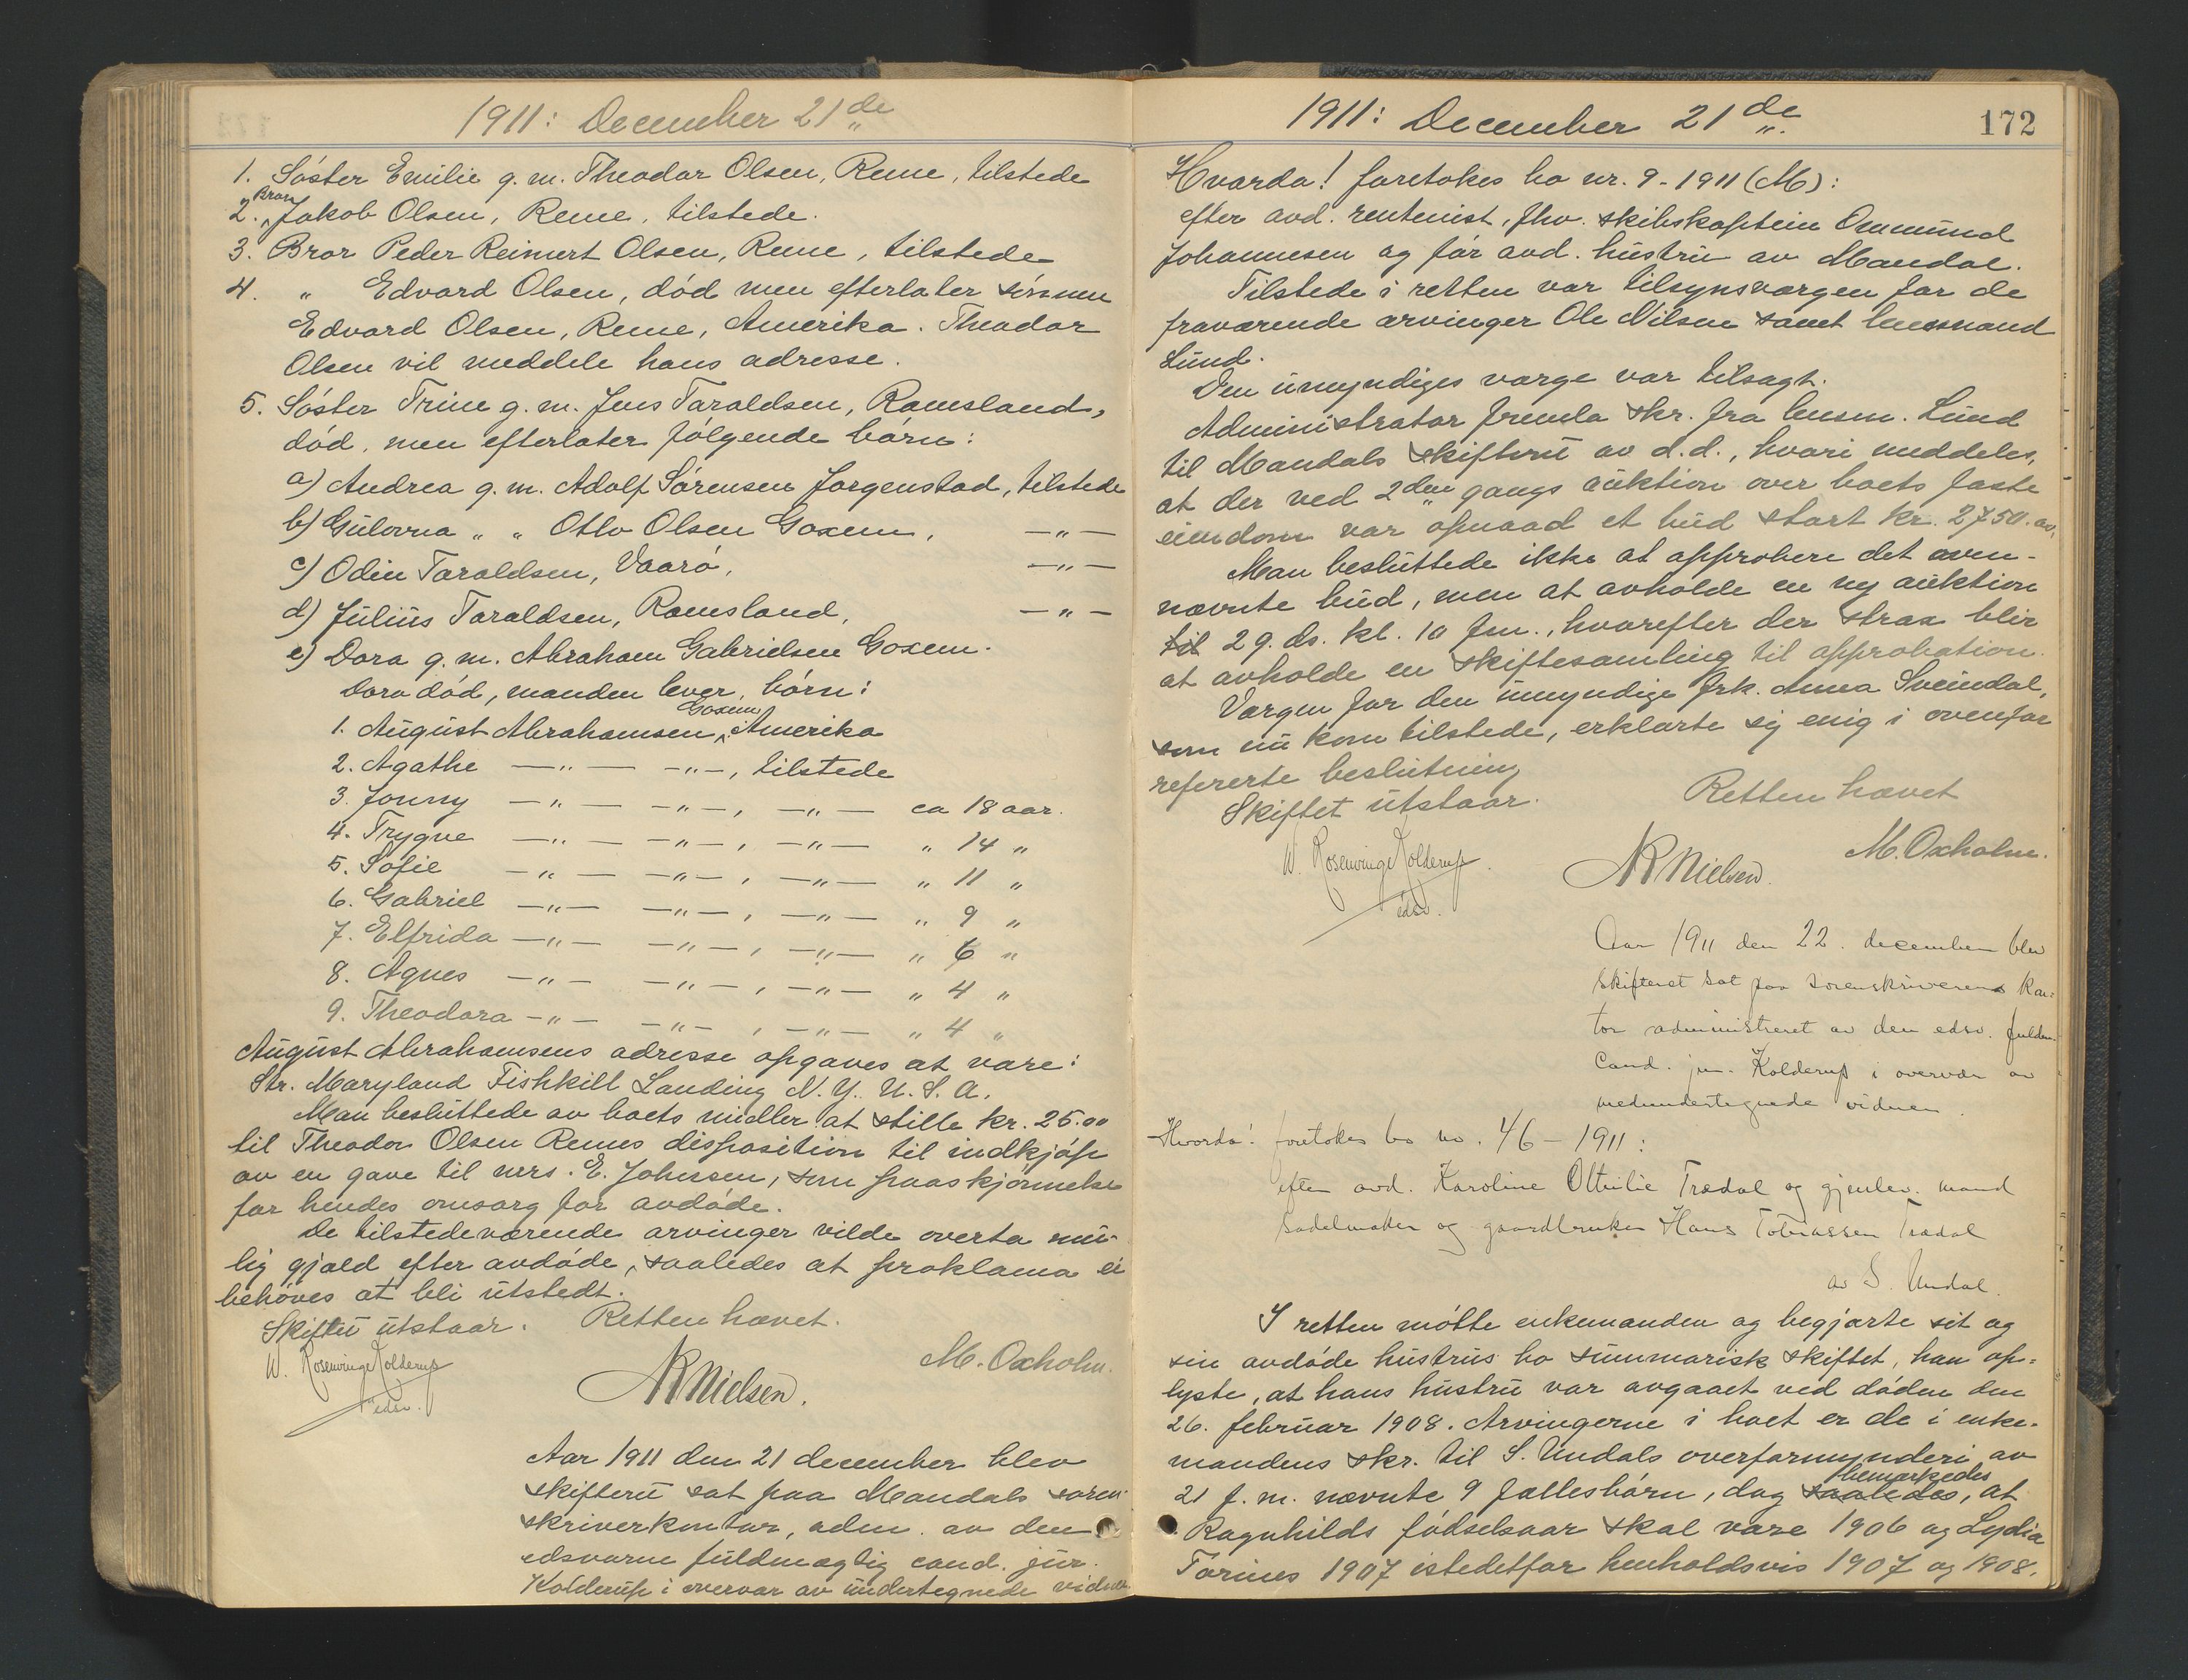 1911: December 21de
1. Søster Emilie g. m. Theodor Olsen, Reme, tilstede
2. Bror Jakob Olsen, Reme, tilstede.
3. Bror Peder Reinert Olsen, Reme, tilstede
4. " Edvard Olsen, død men efterlater sønnen
Edvard Olsen, Reme, Amerika. Theodor
Olsen vil meddele hans adresse.
5. Søster Trine g. m. Jens Taraldsen, Ramsland,
død, men efterlater følgende børn:
a) Andrea g. m. Adolf Sørensen Jorgenstad, tilstede
b) Gulovna " " Otto Olsen Goxem, —"—
c) Odin Taraldsen, Vaarø, —"—
d) Julius Taraldsen, Ramsland, —"—
e) Dora g. m. Abraham Gabrielsen Goxem.
Dora død, manden lever, børn:
1. August Abrahamsen Goxem, Amerika
2. Agathe —"— —"—, tilstede
3. Jonny —"— —"—, —"— ca 18 aar.
4. Trygve —"— —"—, —"— " 14 "
5. Sofie —"— —"—, —"— " 11 "
6. Gabriel —"— —"—, —"— " 9 "
7. Elfrida —"— —"—, —"— " 6 "
8. Agnes —"— —"—, —"— " 4 "
9. Theodora —"— —"—, —"— " 4 "
August Abrahamsens adresse opgaves at være:
Str. Maryland Fishkill Landing N. Y. U. S. A.
Man besluttede av boets midler at stille kr. 25.00
til Theodor Olsen Remes disposition til indkjøp
av en gave til mrs. E. Johnsen, som paaskjønnelse
for hendes omsorg for avdøde.
De tilstedeværende arvinger vilde overta mu-
lig gjæld efter avdøde, saaledes at proklama ei
behøves at bli utstedt.
Skiftet utstaar. Retten hævet.
W. Rosenvinge Kolderup
edsv.
NR Nielsen.
M. Oxholm.
Aar 1911 den 21 december blev
skifteret sat paa Mandals soren-
skriverkontor, adm. av den
edsvorne fuldmægtig cand. jur.
Kolderup i overvær av undertegnede vidner.
1911: December 21de
172
Hvorda! foretokes bo nr. 9 - 1911 (M):
efter avd. rentenist, fhv. skibskaptein Ommund
Johannesen og før avd. hustru av Mandal.
Tilstede i retten var tilsynsværgen for de
fraværende arvinger Ole Nilsen samt lensmand
Lund.
Den umyndiges værge var tilsagt.
Administrator fremla skr. fra lensm. Lund
til Mandals skifteret av d.d., hvori meddeles,
at der ved 2den gangs auktion over boets faste
eiendom var opnaad et bud stort kr. 2750.
Man besluttede ikke at approbere det oven-
nævnte bud, men at avholde en ny auktion
til 29. ds. kl. 10 fm., hvorefter der strax blir
at avholde en skiftesamling til approbation.
Værgen for den umyndige frk. Anna Sveindal,
som nu kom tilstede, erklærte sig enig i ovenfor
refererte beslutning
Skiftet utstaar. Retten hævet
W. Rosenvinge Kolderup.
edsv.
NR Nielsen.
M. Oxholm.
Aar 1911 den 22. december blev
skifteret sat paa sorenskriverens kon-
tor administreret av den edsv. fuldm.
Cand. jur. Kolderup i overvær av
medundertegnede vidner.
Hvorda! foretokes bo no. 46 - 1911:
efter avd. Karoline Ottilie Trædal og gjenlev. mand
sadelmaker og gaardbruker Hans Tobiassen Trædal
av S. Undal.
I retten møtte enkemanden og begjærte sit og
sin avdøde hustrus bo summarisk skiftet, han op-
lyste, at hans hustru var avgaaet ved døden den
26. februar 1908. Arvingerne i boet er de i enke-
mandens skr. til S. Undals overformynderi av
21 f. m. nævnte 9 fællesbørn, dog saaledes bemerkedes, at
Ragnhilds fødselsaar skal være 1906 og Lydia
Torines 1907 istedetfor henholdsvis 1907 og 1908.